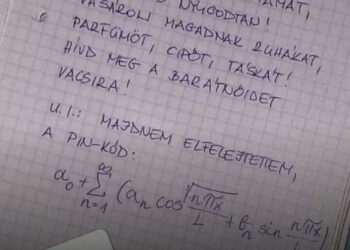 NYUGODTAN!
VÁSÁROLJ MAGADNAK RUHÁKAT,
PARFÜMÖT, CIPŐT, TÁSKÁT!
HÍVD MEG A BARÁTNŐIDET
VACSIRA!
U.I.: MAJDNEM ELFELEJTETTEM,
A PIN-KÓD:
a₀ + ∑ₙ₌₁^∞ (aₙ cos √nπx/L + bₙ sin nπx/L